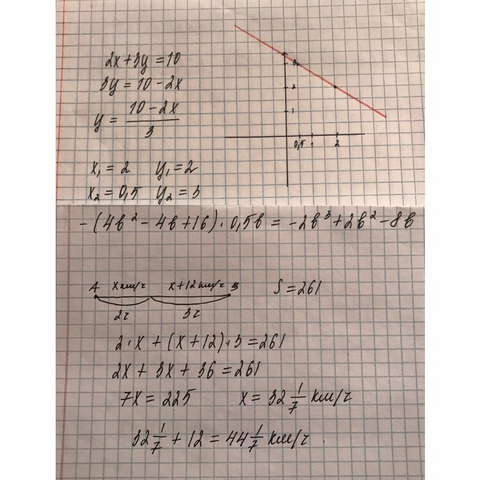 2x + 3y = 10
3y = 10 - 2x
y = (10 - 2x)/3
x₁ = 2 y₁ = 2
x₂ = 0,5 y₂ = 3
3
2
1
0,5 1 2
-(4b² - 4b + 16) · 0,5b = -2b³ + 2b² - 8b
A x км/ч x+12 км/ч B S = 261
2ч 3ч
2·x + (x+12)·3 = 261
2x + 3x + 36 = 261
7x = 225 x = 32 1/7 км/ч
32 1/7 + 12 = 44 1/7 км/ч.